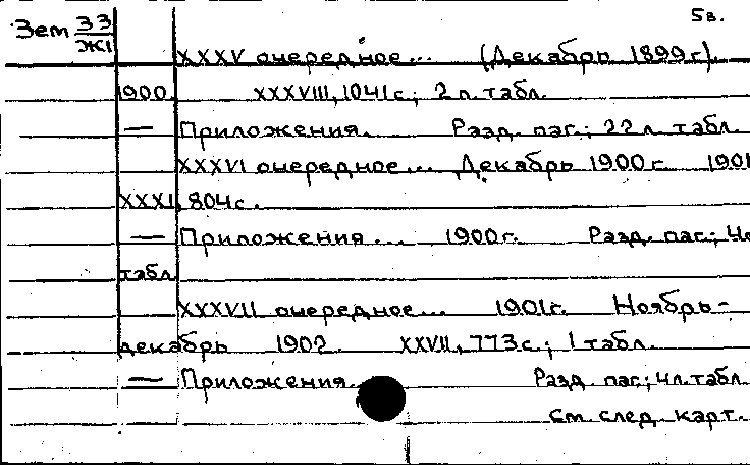 5в.
Зем 33
Ж1
XXXV очередное... (Декабрь 1899 г).
1900. XXXVIII, 1041 с.; 2 л. табл.
— Приложения. Разд. паг.; 22 л. табл.
XXXVI очередное... Декабрь 1900 г. 1901
XXXI, 804 с.
— Приложения... 1900 г. Разд. паг.; 4 л.
табл.
XXXVII очередное... 1901 г. Ноябрь-
декабрь 1902. XXVII, 773 с.; 1 табл.
— Приложения. Разд. паг.; 4 л. табл.
См. след. карт.